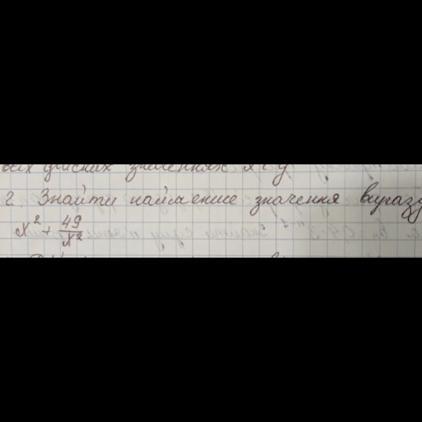 всіх дійсних значеннях x і y
2. Знайти найменше значення виразу
x² + 49/x²